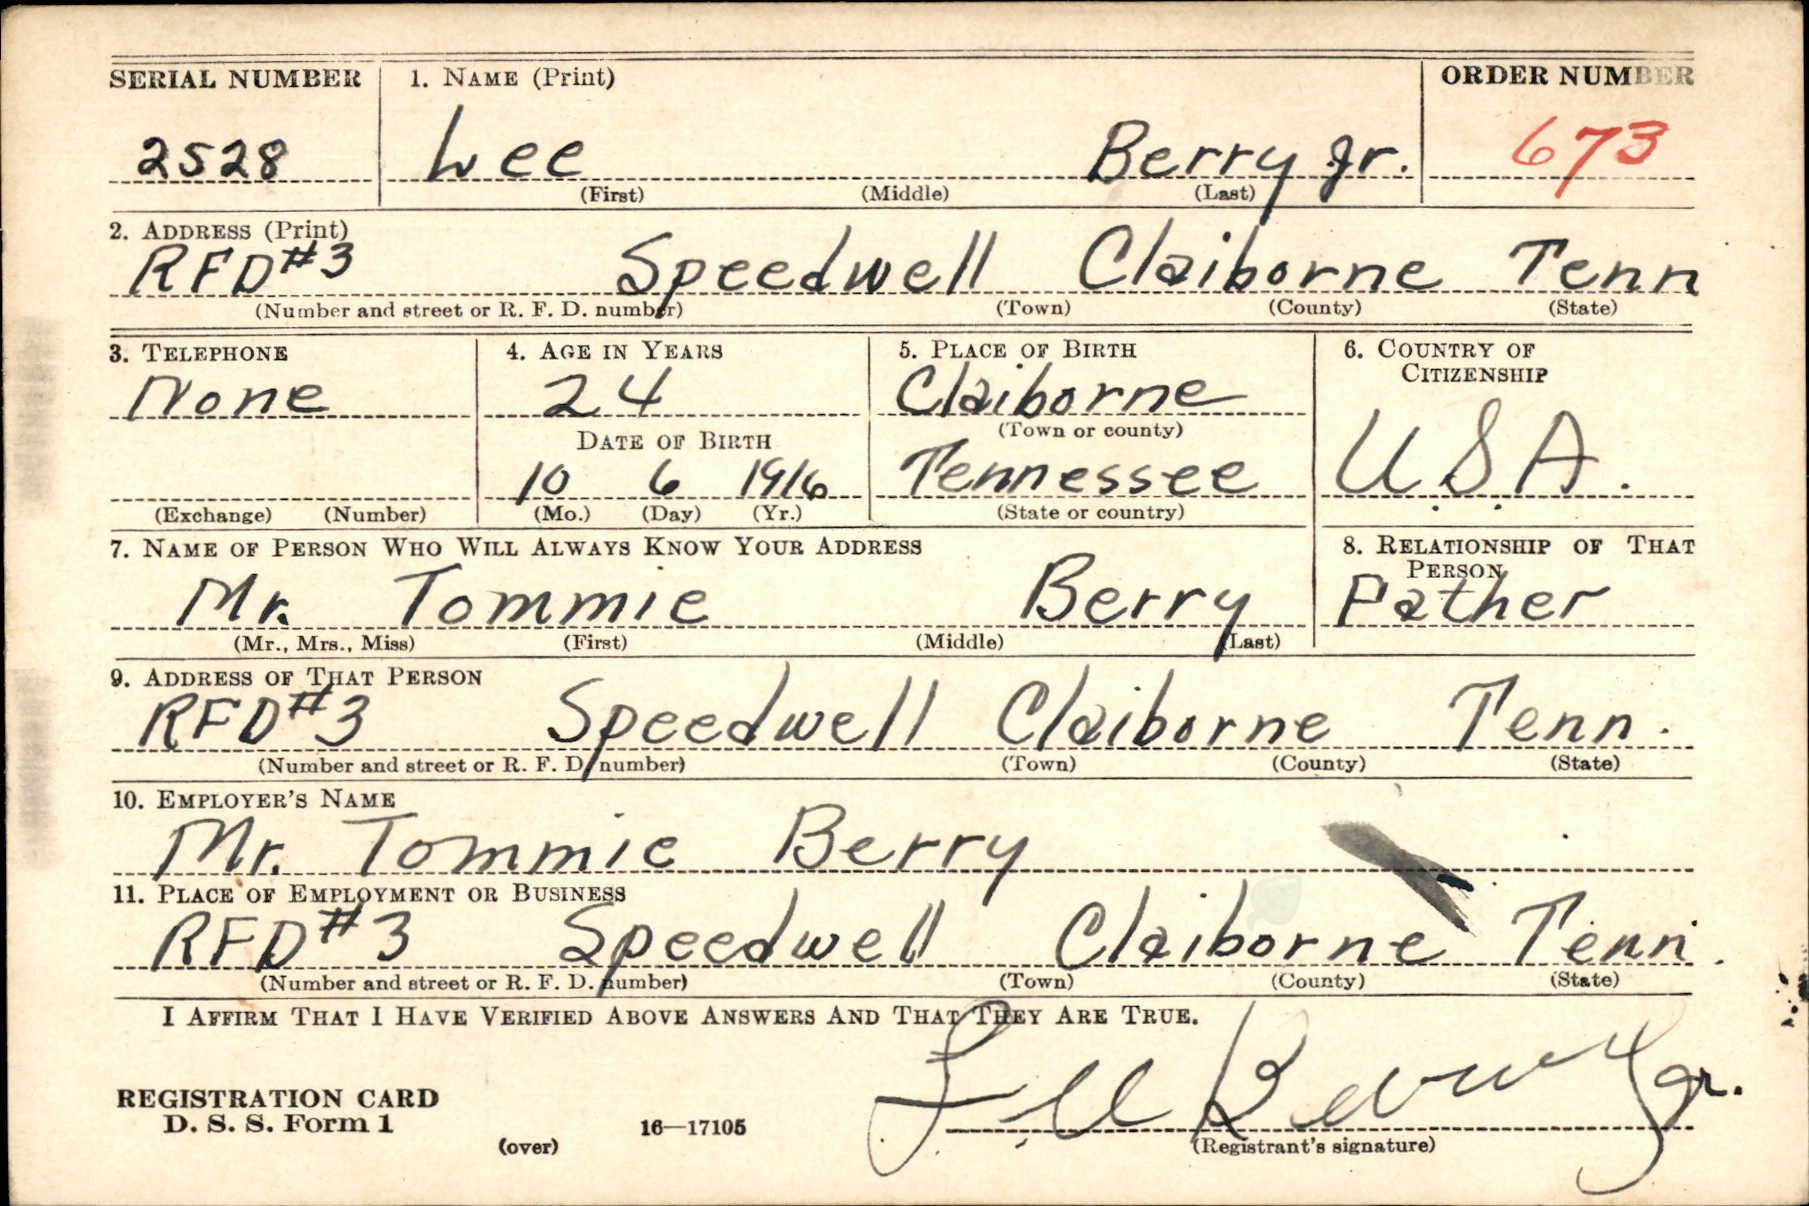 SERIAL NUMBER 1. NAME (Print) ORDER NUMBER
2528 Lee Berry Jr. 673
(First) (Middle) (Last)
2. ADDRESS (Print)
RFD #3 Speedwell Claiborne Tenn
(Number and street or R. F. D. number) (Town) (County) (State)
3. TELEPHONE 4. AGE IN YEARS 5. PLACE OF BIRTH 6. COUNTRY OF
CITIZENSHIP
None 24 Claiborne
DATE OF BIRTH (Town or county)
10 6 1916 Tennessee U.S.A.
(Exchange) (Number) (Mo.) (Day) (Yr.) (State or country)
7. NAME OF PERSON WHO WILL ALWAYS KNOW YOUR ADDRESS 8. RELATIONSHIP OF THAT
PERSON
Mr. Tommie Berry Father
(Mr., Mrs., Miss) (First) (Middle) (Last)
9. ADDRESS OF THAT PERSON
RFD #3 Speedwell Claiborne Tenn.
(Number and street or R. F. D. number) (Town) (County) (State)
10. EMPLOYER'S NAME
Mr. Tommie Berry
11. PLACE OF EMPLOYMENT OR BUSINESS
RFD #3 Speedwell Claiborne Tenn.
(Number and street or R. F. D. number) (Town) (County) (State)
I AFFIRM THAT I HAVE VERIFIED ABOVE ANSWERS AND THAT THEY ARE TRUE.
REGISTRATION CARD Lee Berry Jr.
D. S. S. Form 1
(over) 16—17105 (Registrant's signature)